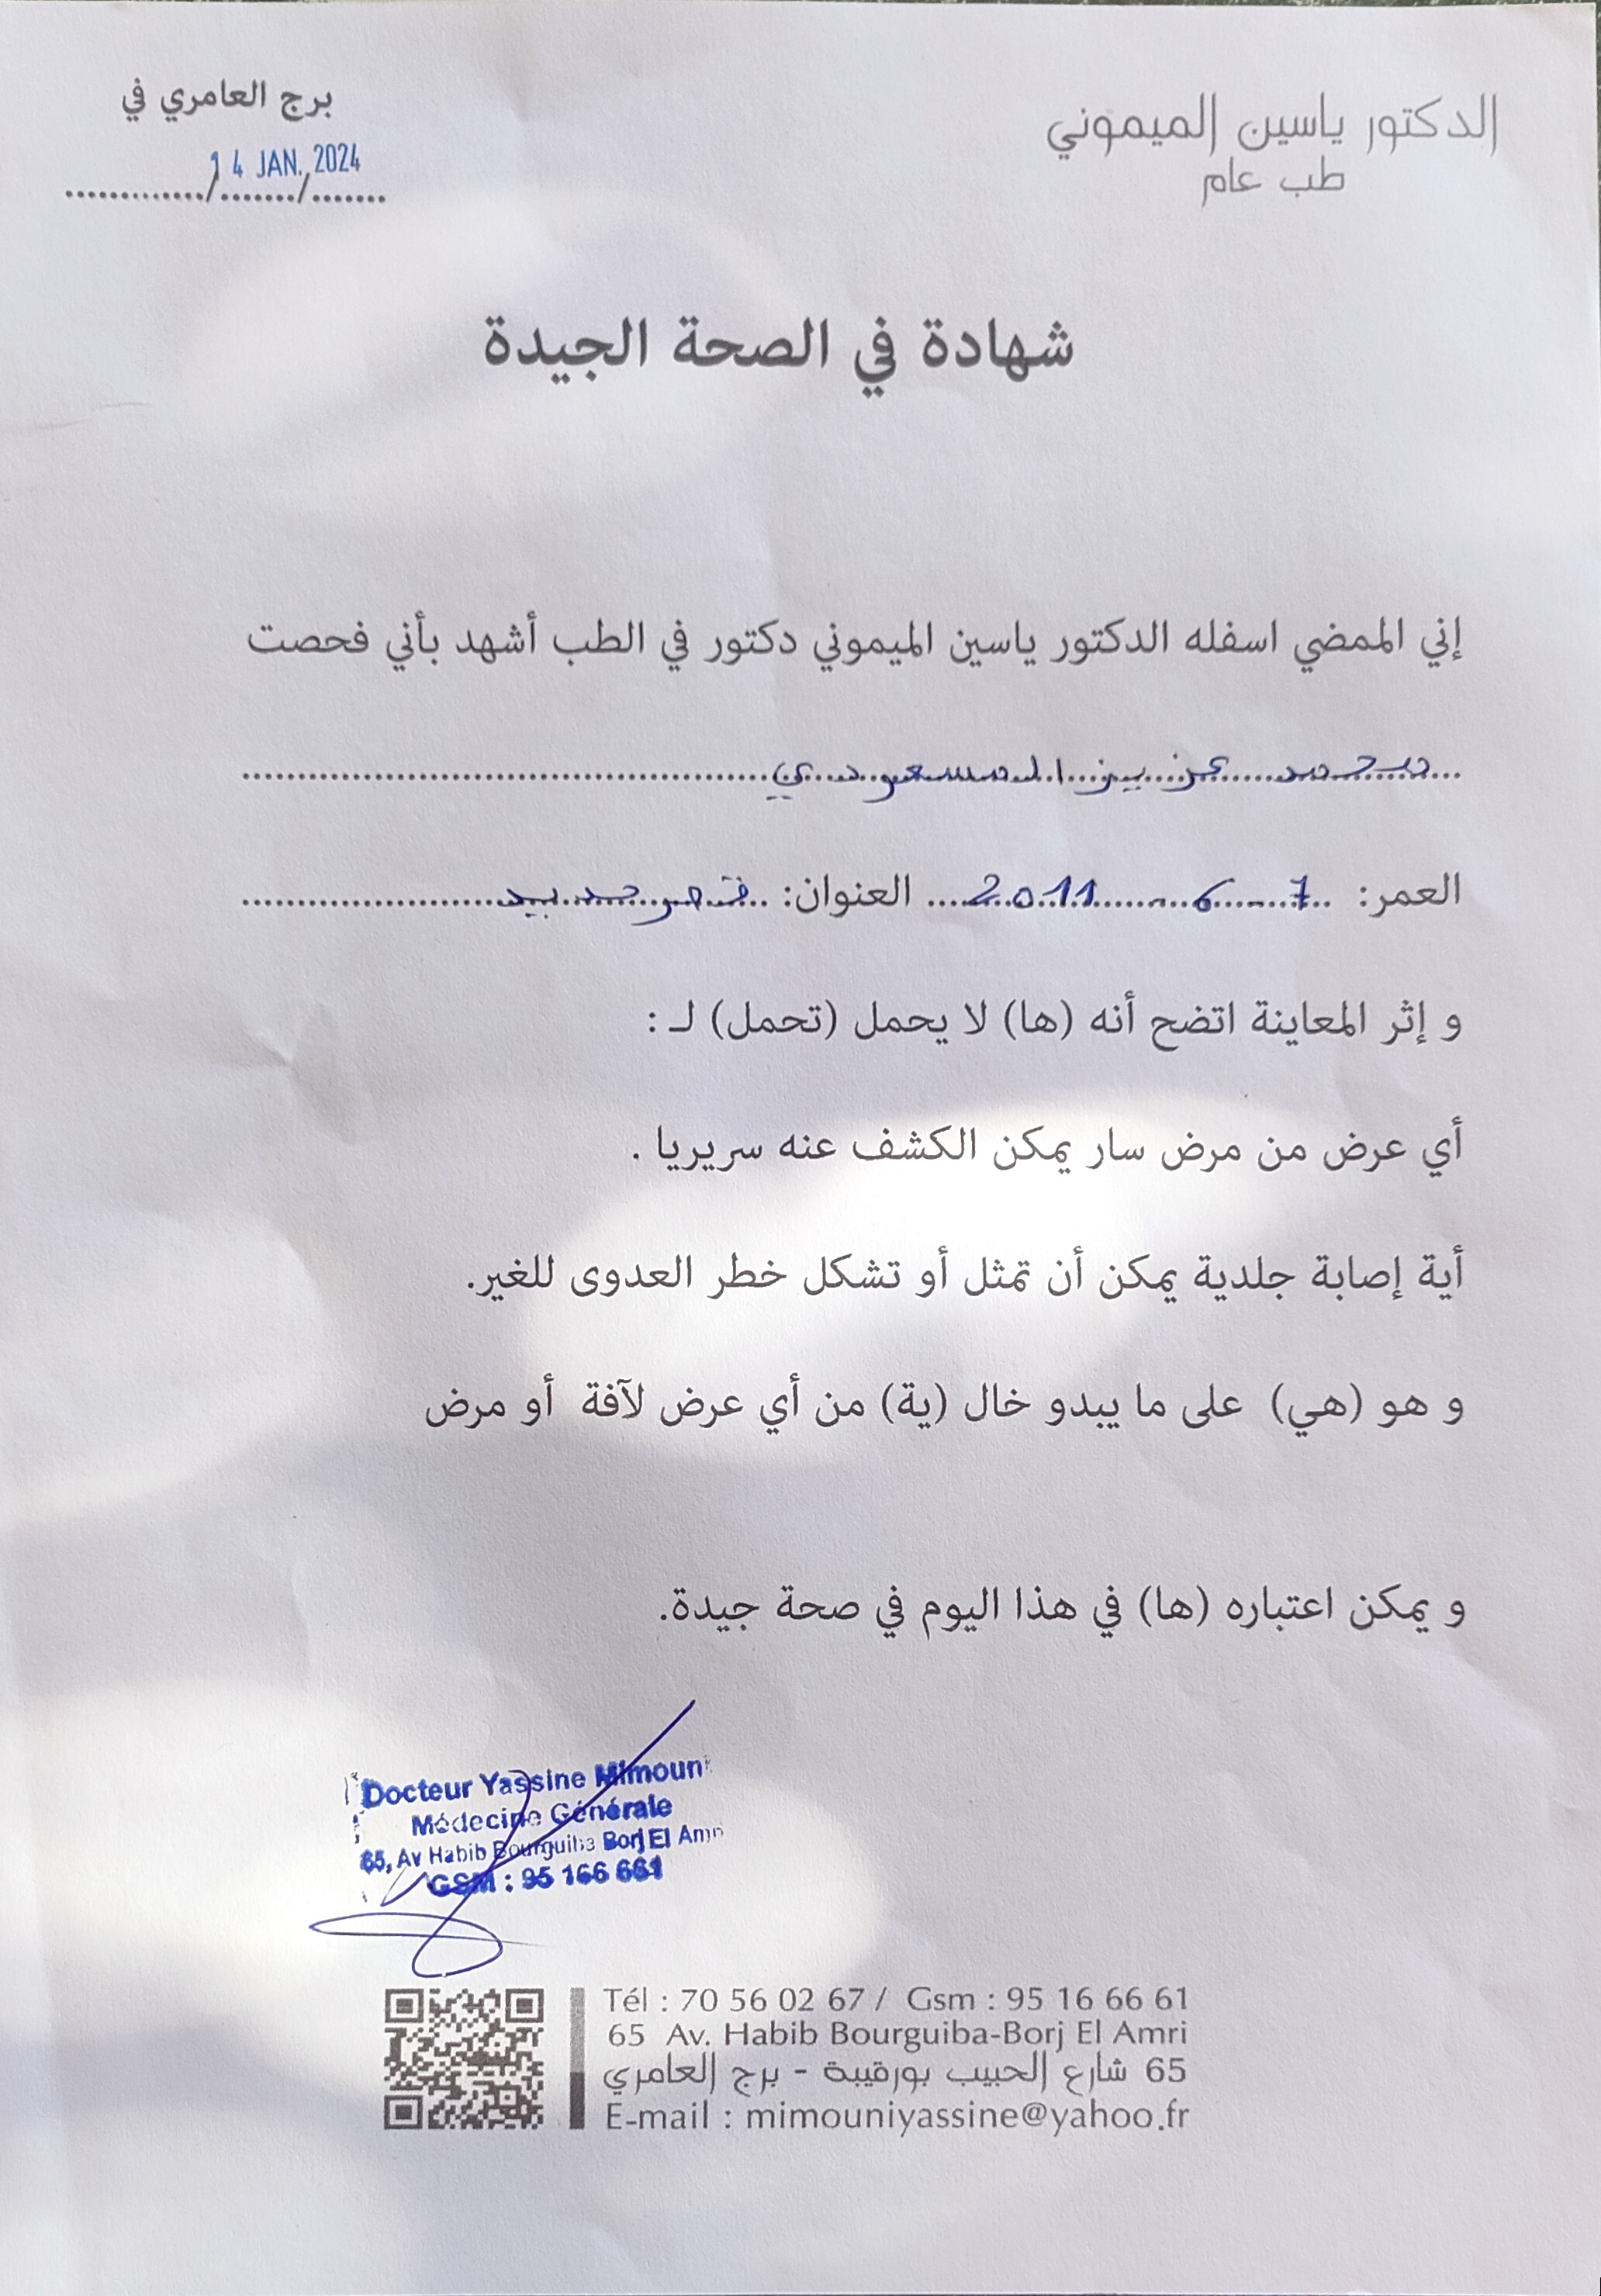 الدكتور ياسين الميموني
طب عام
برج العامري في
14 JAN. 2024
............./......./.......
شهادة في الصحة الجيدة
إني الممضي اسفله الدكتور ياسين الميموني دكتور في الطب أشهد بأني فحصت
محمد عزيز المسعودي
العمر: 7 - 6 - 2011 العنوان: قصر حديد
و إثر المعاينة اتضح أنه (ها) لا يحمل (تحمل) لـ :
أي عرض من مرض سار يمكن الكشف عنه سريريا .
أية إصابة جلدية يمكن أن تمثل أو تشكل خطر العدوى للغير.
و هو (هي) على ما يبدو خال (ية) من أي عرض لآفة أو مرض
و يمكن اعتباره (ها) في هذا اليوم في صحة جيدة.
Docteur Yassine Mimouni
Médecine Générale
65, Av Habib Bourguiba Borj El Amri
GSM : 95 166 661
Tél : 70 56 02 67 / Gsm : 95 16 66 61
65 Av. Habib Bourguiba-Borj El Amri
65 شارع الحبيب بورقيبة - برج العامري
E-mail : mimouniyassine@yahoo.fr